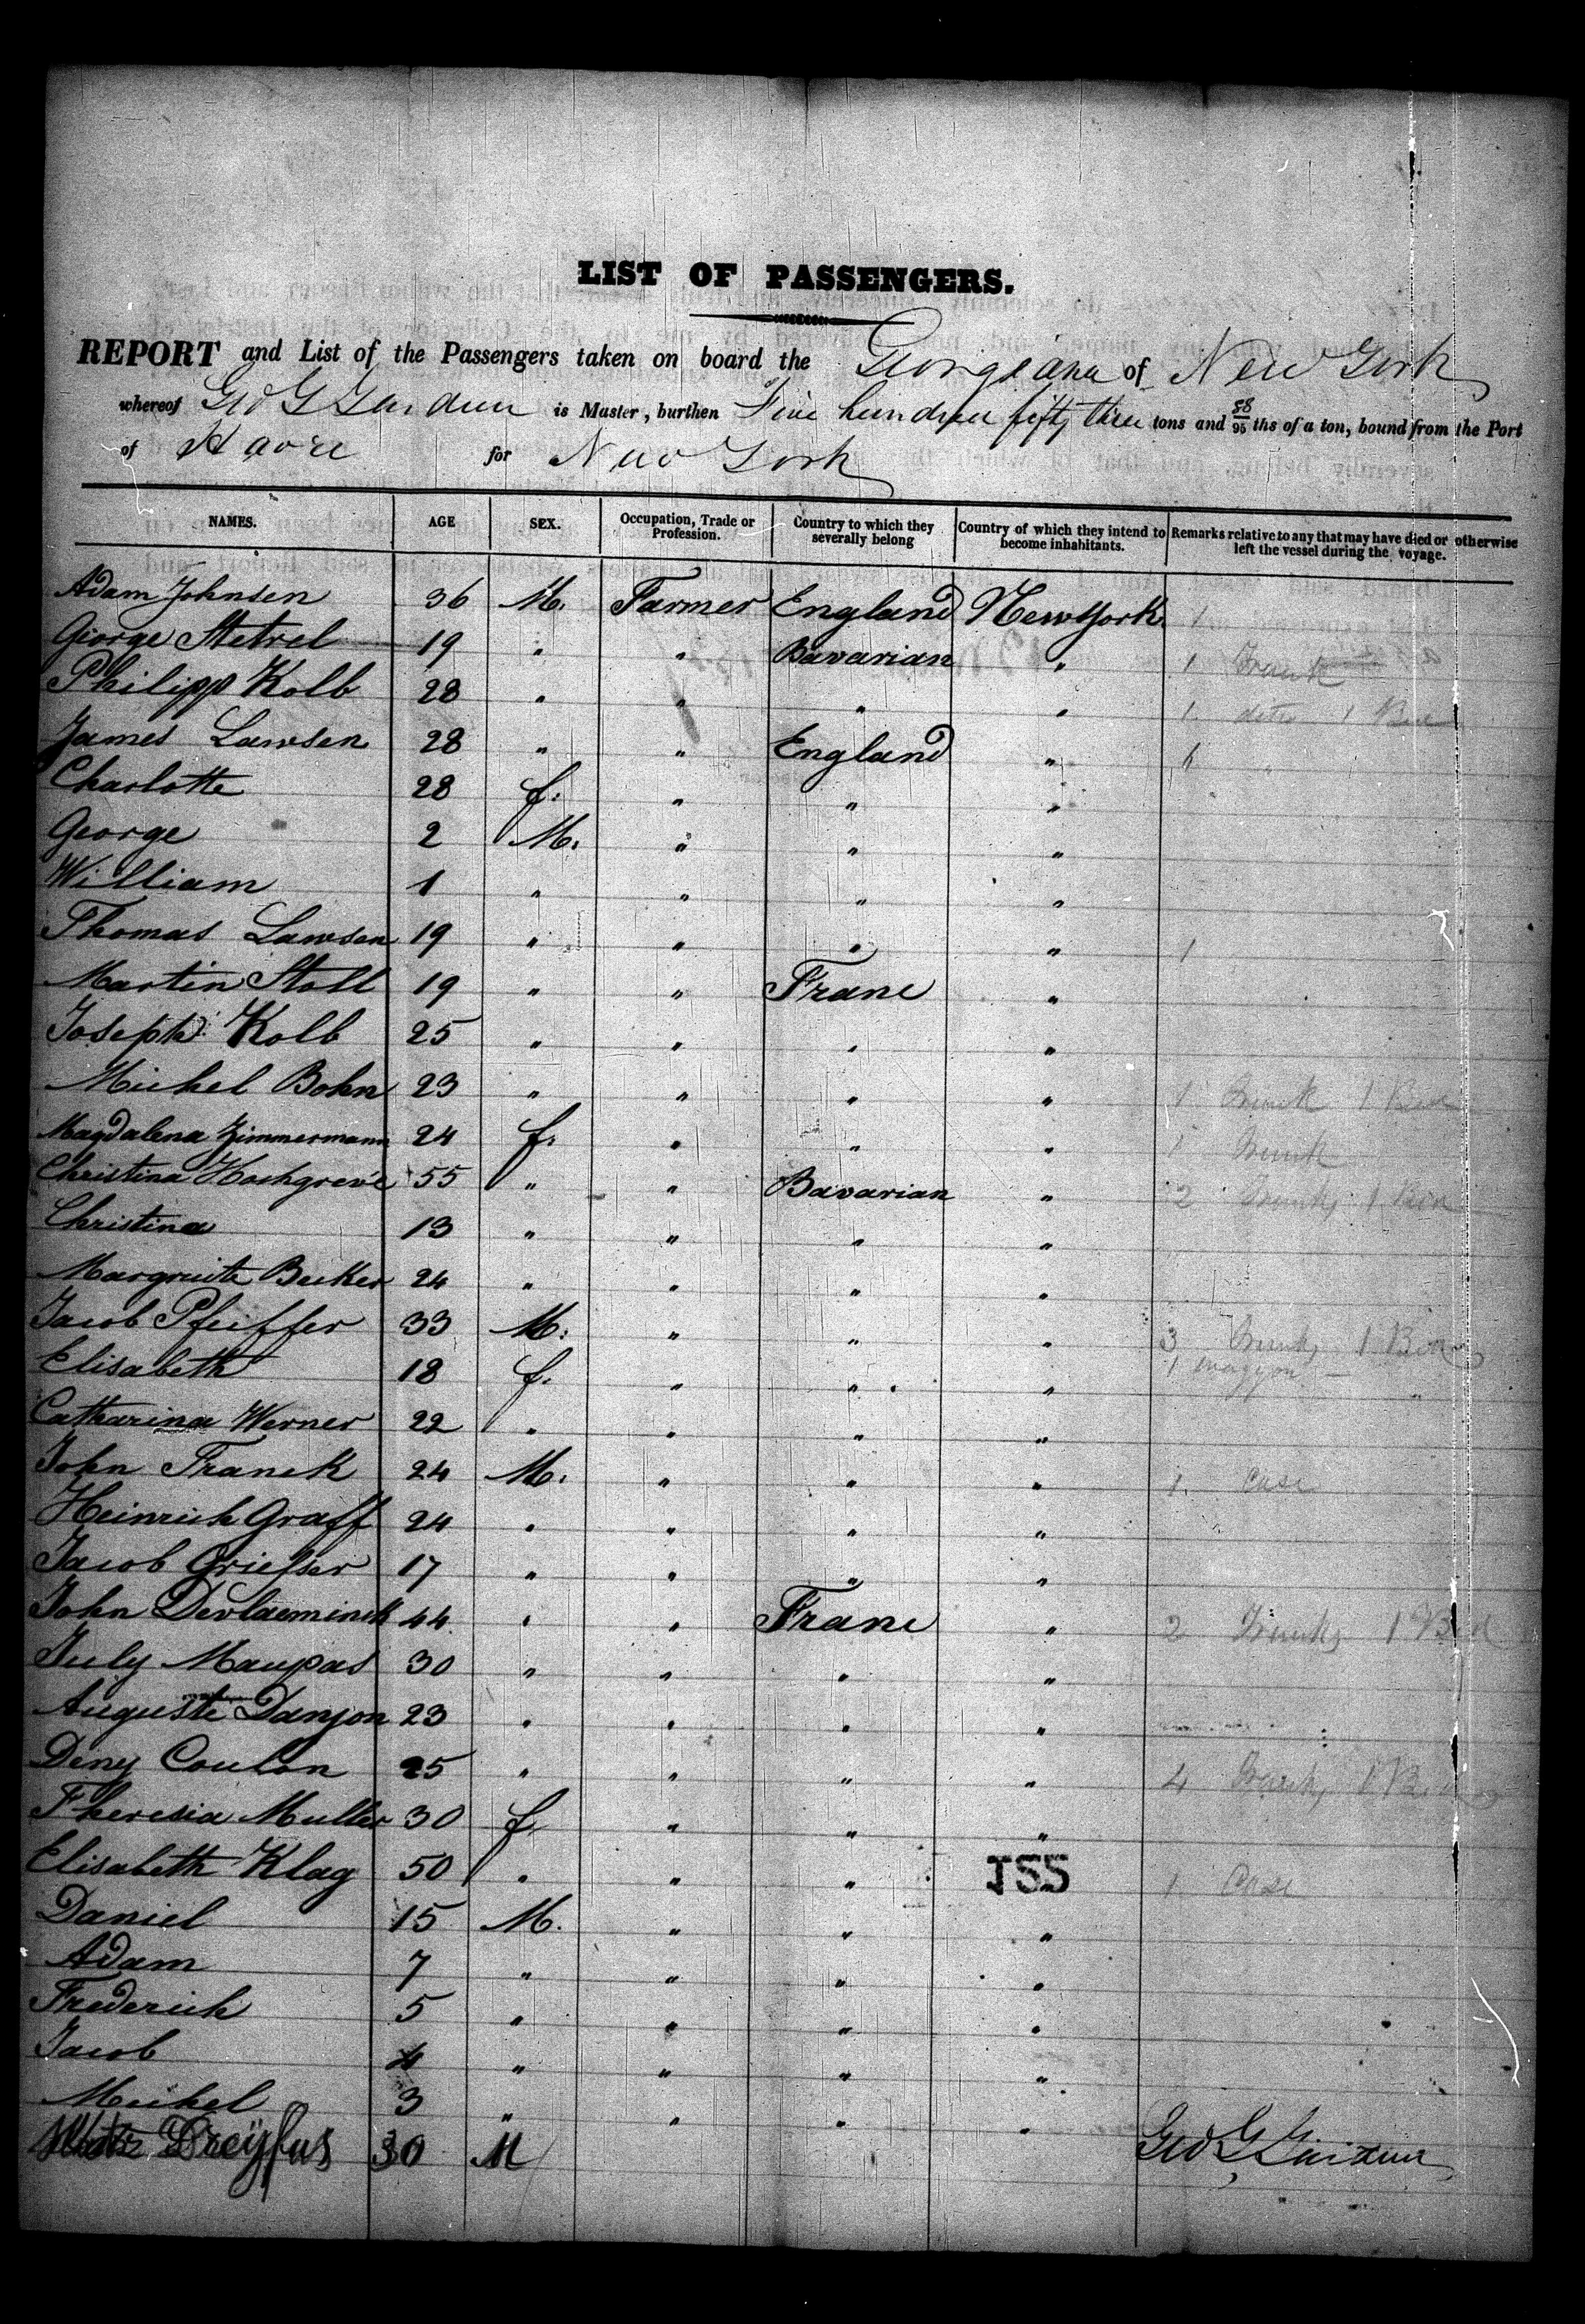 LIST OF PASSENGERS.
REPORT and List of the Passengers taken on board the Georgeana of New York
whereof Geo G is Master, burthen Five hundred fifty three tons and 58/95 ths of a ton, bound from the Port
of Havre for New York
NAMES. AGE SEX. Occupation, Trade or Profession. Country to which they severally belong Country of which they intend to become inhabitants. Remarks relative to any that may have died or otherwise left the vessel during the voyage.
Adam Johnsen 36 M. Farmer England New York 1
George Stetrel 19 " " Bavarian " 1 Trunk
Philipp Kolb 28 " " " " 1 ditto 1
James Lawsen 28 " " England "
Charlotte 28 f. " " "
George 2 M. " " "
William 1 " " " "
Thomas Lawsen 19 " " " " 1
Martin Stoll 19 " " Franc "
Joseph Kolb 25 " " " "
Michel Bohn 23 " " " " 1 Trunk 1
Magdalena Zimmermann 24 f. " " " 1 Trunk
Christina Hochgreve 55 " " Bavarian " 2 Trunks 1
Christina 13 " " " "
Margruite Becker 24 " " " "
Jacob Pfeiffer 33 M. " " " 3 Trunks 1
Elisabeth 18 f. " " " 1
Catharina Werner 22 " " " "
John Franck 24 M. " " " 1 case
Heinrich Graff 24 " " " "
Jacob Griesser 17 " " " "
John Devlaeminck 44 " " Franc " 2 Trunks 1 Bed
July Maupas 30 " " " "
Auguste Danjon 23 " " " "
Deny Coulon 25 " " " " 4 Trunks 1
Theresia Muller 30 f. " " "
Elisabeth Klag 50 " " " 155 1 Case
Daniel 15 M. " " "
Adam 7 " " " "
Frederick 5 " " " "
Jacob 4 " " " "
Michel 3 " " " "
Dreyfus 30 M Geo G